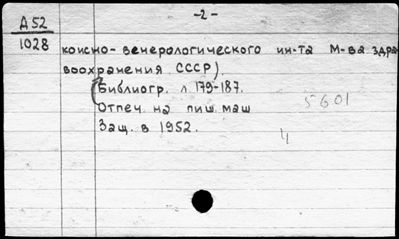 -2-
А52
1028
коисно-венерологического ин-та М-ва здра
воохранения СССР).
(Библиогр. л. 179-187.
Отпеч. на пиш. маш
Защ. в 1952.
5601
4